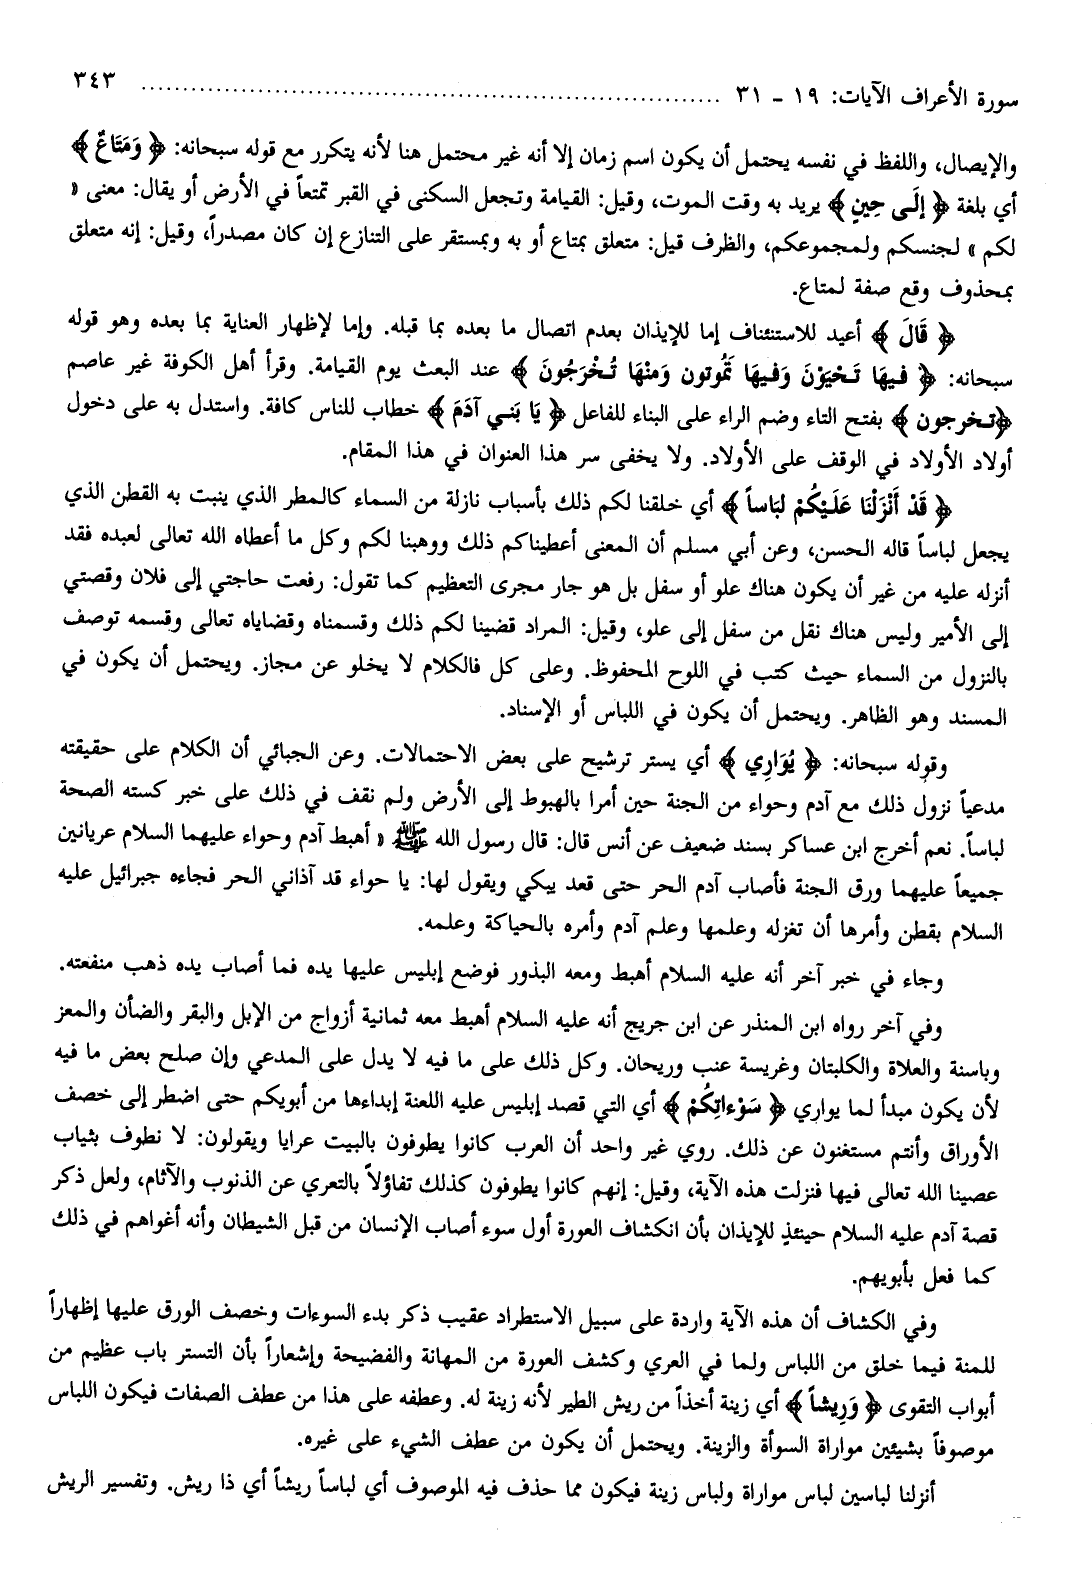 سورة الأعراف الآيات: ١٩ - ٣١ ........................................ ٣٤٣
والإيصال، واللفظ في نفسه يحتمل أن يكون اسم زمان إلا أنه غير محتمل هنا لأنه يتكرر مع قوله سبحانه: ﴿ وَمَتَاعٌ ﴾
أي بلغة ﴿ إلَى حِينٍ ﴾ يريد به وقت الموت، وقيل: القيامة وتجعل السكنى في القبر تمتعاً في الأرض أو يقال: معنى «
لكم » لجنسكم ولمجموعكم، والظرف قيل: متعلق بمتاع أو به وبمستقر على التنازع إن كان مصدراً، وقيل: إنه متعلق
بمحذوف وقع صفة لمتاع.
﴿ قَالَ ﴾ أعيد للاستئناف إما للإيذان بعدم اتصال ما بعده بما قبله. وإما لإظهار العناية بما بعده وهو قوله
سبحانه: ﴿ فيهَا تَحْيَوْنَ وَفيهَا تَمُوتون وَمنْهَا تُخْرَجُونَ ﴾ عند البعث يوم القيامة. وقرأ أهل الكوفة غير عاصم
﴿تخرجون ﴾ بفتح التاء وضم الراء على البناء للفاعل ﴿ يَا بَني آدَمَ ﴾ خطاب للناس كافة. واستدل به على دخول
أولاد الأولاد في الوقف على الأولاد. ولا يخفى سر هذا العنوان في هذا المقام.
﴿ قَدْ أَنْزَلْنَا عَلَيْكُمْ لبَاساً ﴾ أي خلقنا لكم ذلك بأسباب نازلة من السماء كالمطر الذي ينبت به القطن الذي
يجعل لباساً قاله الحسن، وعن أبي مسلم أن المعنى أعطيناكم ذلك ووهبنا لكم وكل ما أعطاه الله تعالى لعبده فقد
أنزله عليه من غير أن يكون هناك علو أو سفل بل هو جار مجرى التعظيم كما تقول: رفعت حاجتي إلى فلان وقصتي
إلى الأمير وليس هناك نقل من سفل إلى علو، وقيل: المراد قضينا لكم ذلك وقسمناه وقضاياه تعالى وقسمه توصف
بالنزول من السماء حيث كتب في اللوح المحفوظ. وعلى كل فالكلام لا يخلو عن مجاز. ويحتمل أن يكون في
المسند وهو الظاهر. ويحتمل أن يكون في اللباس أو الإسناد.
وقوله سبحانه: ﴿ يُوَارِي ﴾ أي يستر ترشيح على بعض الاحتمالات. وعن الجبائي أن الكلام على حقيقته
مدعياً نزول ذلك مع آدم وحواء من الجنة حين أمرا بالهبوط إلى الأرض ولم نقف في ذلك على خبر كسته الصحة
لباساً. نعم أخرج ابن عساكر بسند ضعيف عن أنس قال: قال رسول الله ﷺ « أهبط آدم وحواء عليهما السلام عريانين
جميعاً عليهما ورق الجنة فأصاب آدم الحر حتى قعد يبكي ويقول لها: يا حواء قد آذاني الحر فجاءه جبرائيل عليه
السلام بقطن وأمرها أن تغزله وعلمها وعلم آدم وأمره بالحياكة وعلمه.
وجاء في خبر آخر أنه عليه السلام أهبط ومعه البذور فوضع إبليس عليها يده فما أصاب يده ذهب منفعته.
وفي آخر رواه ابن المنذر عن ابن جريج أنه عليه السلام أهبط معه ثمانية أزواج من الإبل والبقر والضأن والمعز
وباسنة والعلاة والكلبتان وغريسة عنب وريحان. وكل ذلك على ما فيه لا يدل على المدعي وإن صلح بعض ما فيه
لأن يكون مبدأ لما يواري ﴿ سَوْءَاتِكُمْ ﴾ أي التي قصد إبليس عليه اللعنة إبداءها من أبويكم حتى اضطر إلى خصف
الأوراق وأنتم مستغنون عن ذلك. روي غير واحد أن العرب كانوا يطوفون بالبيت عرايا ويقولون: لا نطوف بثياب
عصينا الله تعالى فيها فنزلت هذه الآية، وقيل: إنهم كانوا يطوفون كذلك تفاؤلاً بالتعري عن الذنوب والآثام، ولعل ذكر
قصة آدم عليه السلام حينئذٍ للإيذان بأن انكشاف العورة أول سوء أصاب الإنسان من قبل الشيطان وأنه أغواهم في ذلك
كما فعل بأبويهم.
وفي الكشاف أن هذه الآية واردة على سبيل الاستطراد عقيب ذكر بدء السوءات وخصف الورق عليها إظهاراً
للمنة فيما خلق من اللباس ولما في العري وكشف العورة من المهانة والفضيحة وإشعاراً بأن التستر باب عظيم من
أبواب التقوى ﴿ وَرِيشاً ﴾ أي زينة أخذاً من ريش الطير لأنه زينة له. وعطفه على هذا من عطف الصفات فيكون اللباس
موصوفاً بشيئين مواراة السوأة والزينة. ويحتمل أن يكون من عطف الشيء على غيره.
أنزلنا لباسين لباس مواراة ولباس زينة فيكون مما حذف فيه الموصوف أي لباساً ريشاً أي ذا ريش. وتفسير الريش